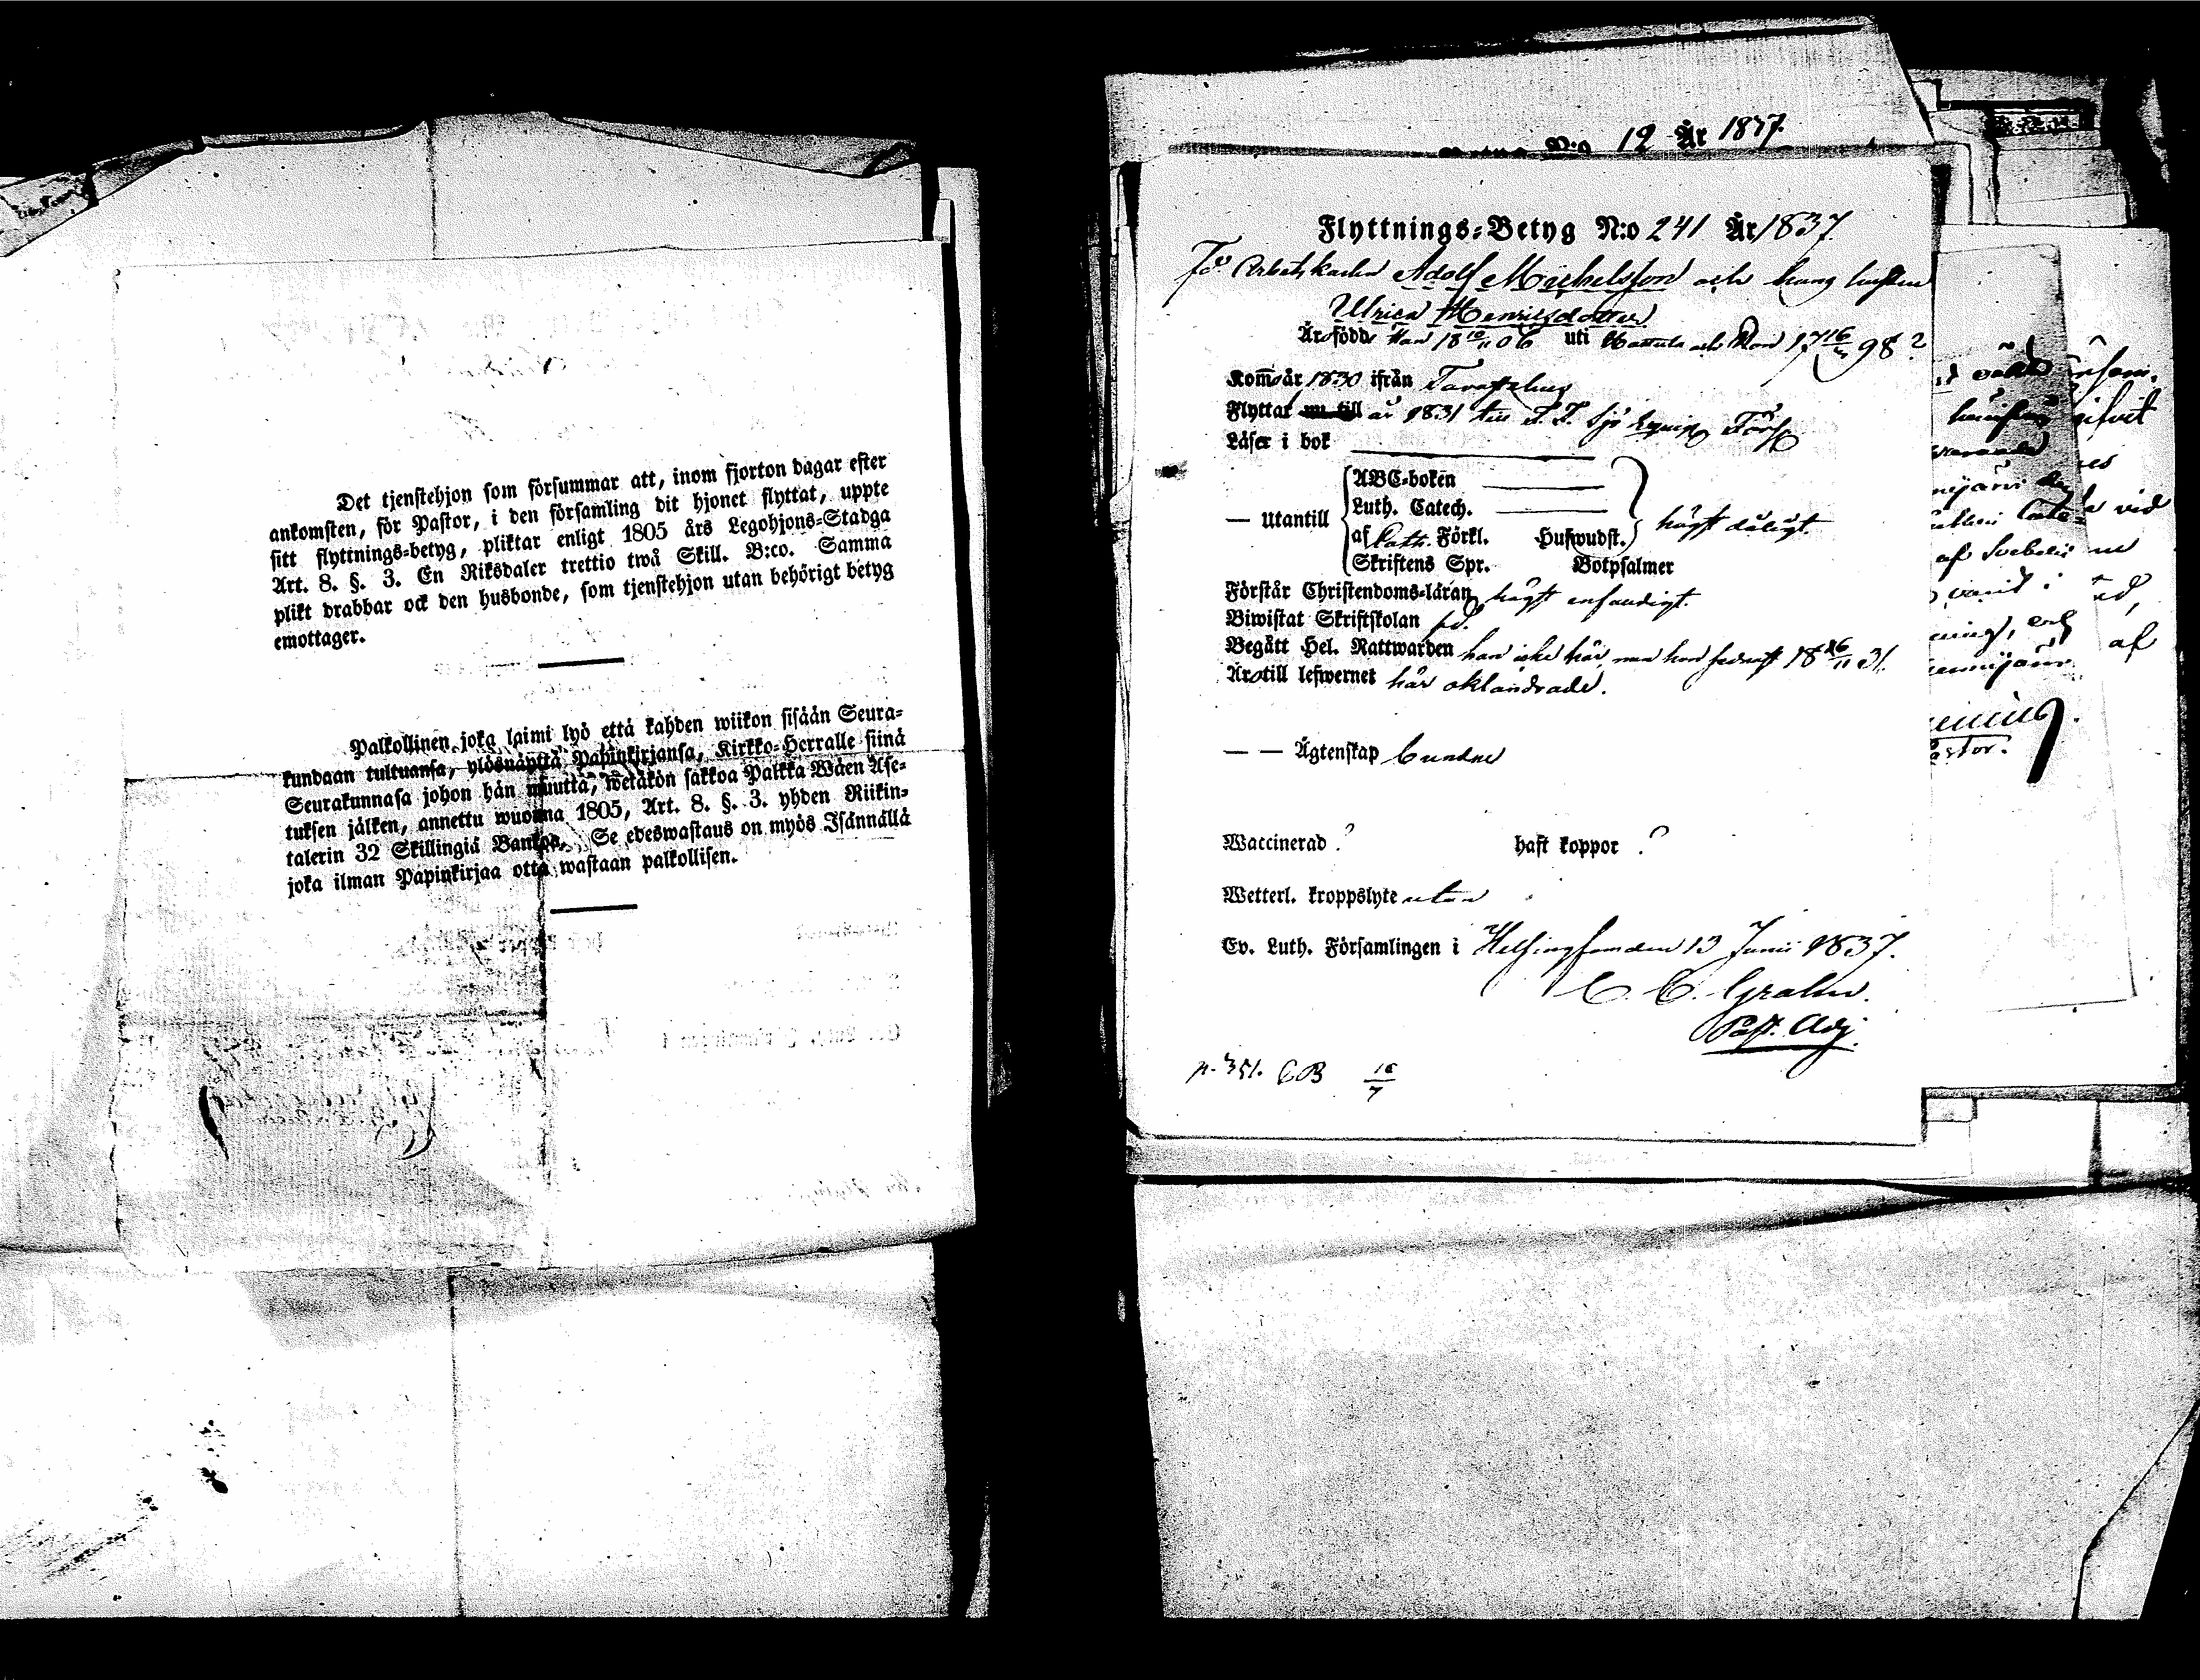 Det tjenstehjon som försummar att, inom fjorton dagar efter
ankomsten, för Pastor, i den församling dit hjonet flyttat, uppte
sitt flyttnings-betyg, pliktar enligt 1805 års Legohjons-Stadga
Art. 8. §. 3. En Riksdaler trettio twå Skill. B:co. Samma
plikt drabbar ock den husbonde, som tjenstehjon utan behörigt betyg
emottager.
Palkollinen joka laimi lyö että kahden wiikon sisään Seura-
kundaan tultuansa, ylösnäyttä Papinkirjansa, Kirkko-Herralle siinä
Seurakunnasa johon hän muuttå, wetäkön sakkoa Palkka Wäen Ase-
tuksen jälken, annettu wuonna 1805, Art. 8. §. 3. yhden Riikin-
talerin 32 Skillingiä Bankos. Se edeswastaus on myös Isännällä
joka ilman Papinkirjaa otta wastaan palkollisen.
N:o 12 År 1837.
Flyttnings-Betyg N:o 241 År 1837
För Arbetskarlen Adolf Michelsson och hans hustru
Ulrica Henricsdotter
Äro född Han 18 10/11 06 uti Hattula och Hon 17 16/ 98?
Kom år 1830 ifrån Tavastehus
Flyttat nu till år 1831 till Sjö Equip
Läser i bok
— Utantill
ABC-boken
Luth. Catech.
af Cath. Förkl. Hufwudst.
Skriftens Spr. Botpsalmer
högst dåligt.
Förstår Christendoms-läran högst enfaldigt.
Biwistat Skriftskolan
Begått Hel. Nattwarden han icke här, men hon sednast 18 26/11 31.
Äro till lefwernet här oklandrade.
— — Ägtenskap
Waccinerad ? haft koppor ?
Wetterl. kroppslyte utan
Ev. Luth. Församlingen i Helsingfors den 13 Junii 1837.
C. C. Grahn.
Past. Adj.
p. 351. CB 16/7
af